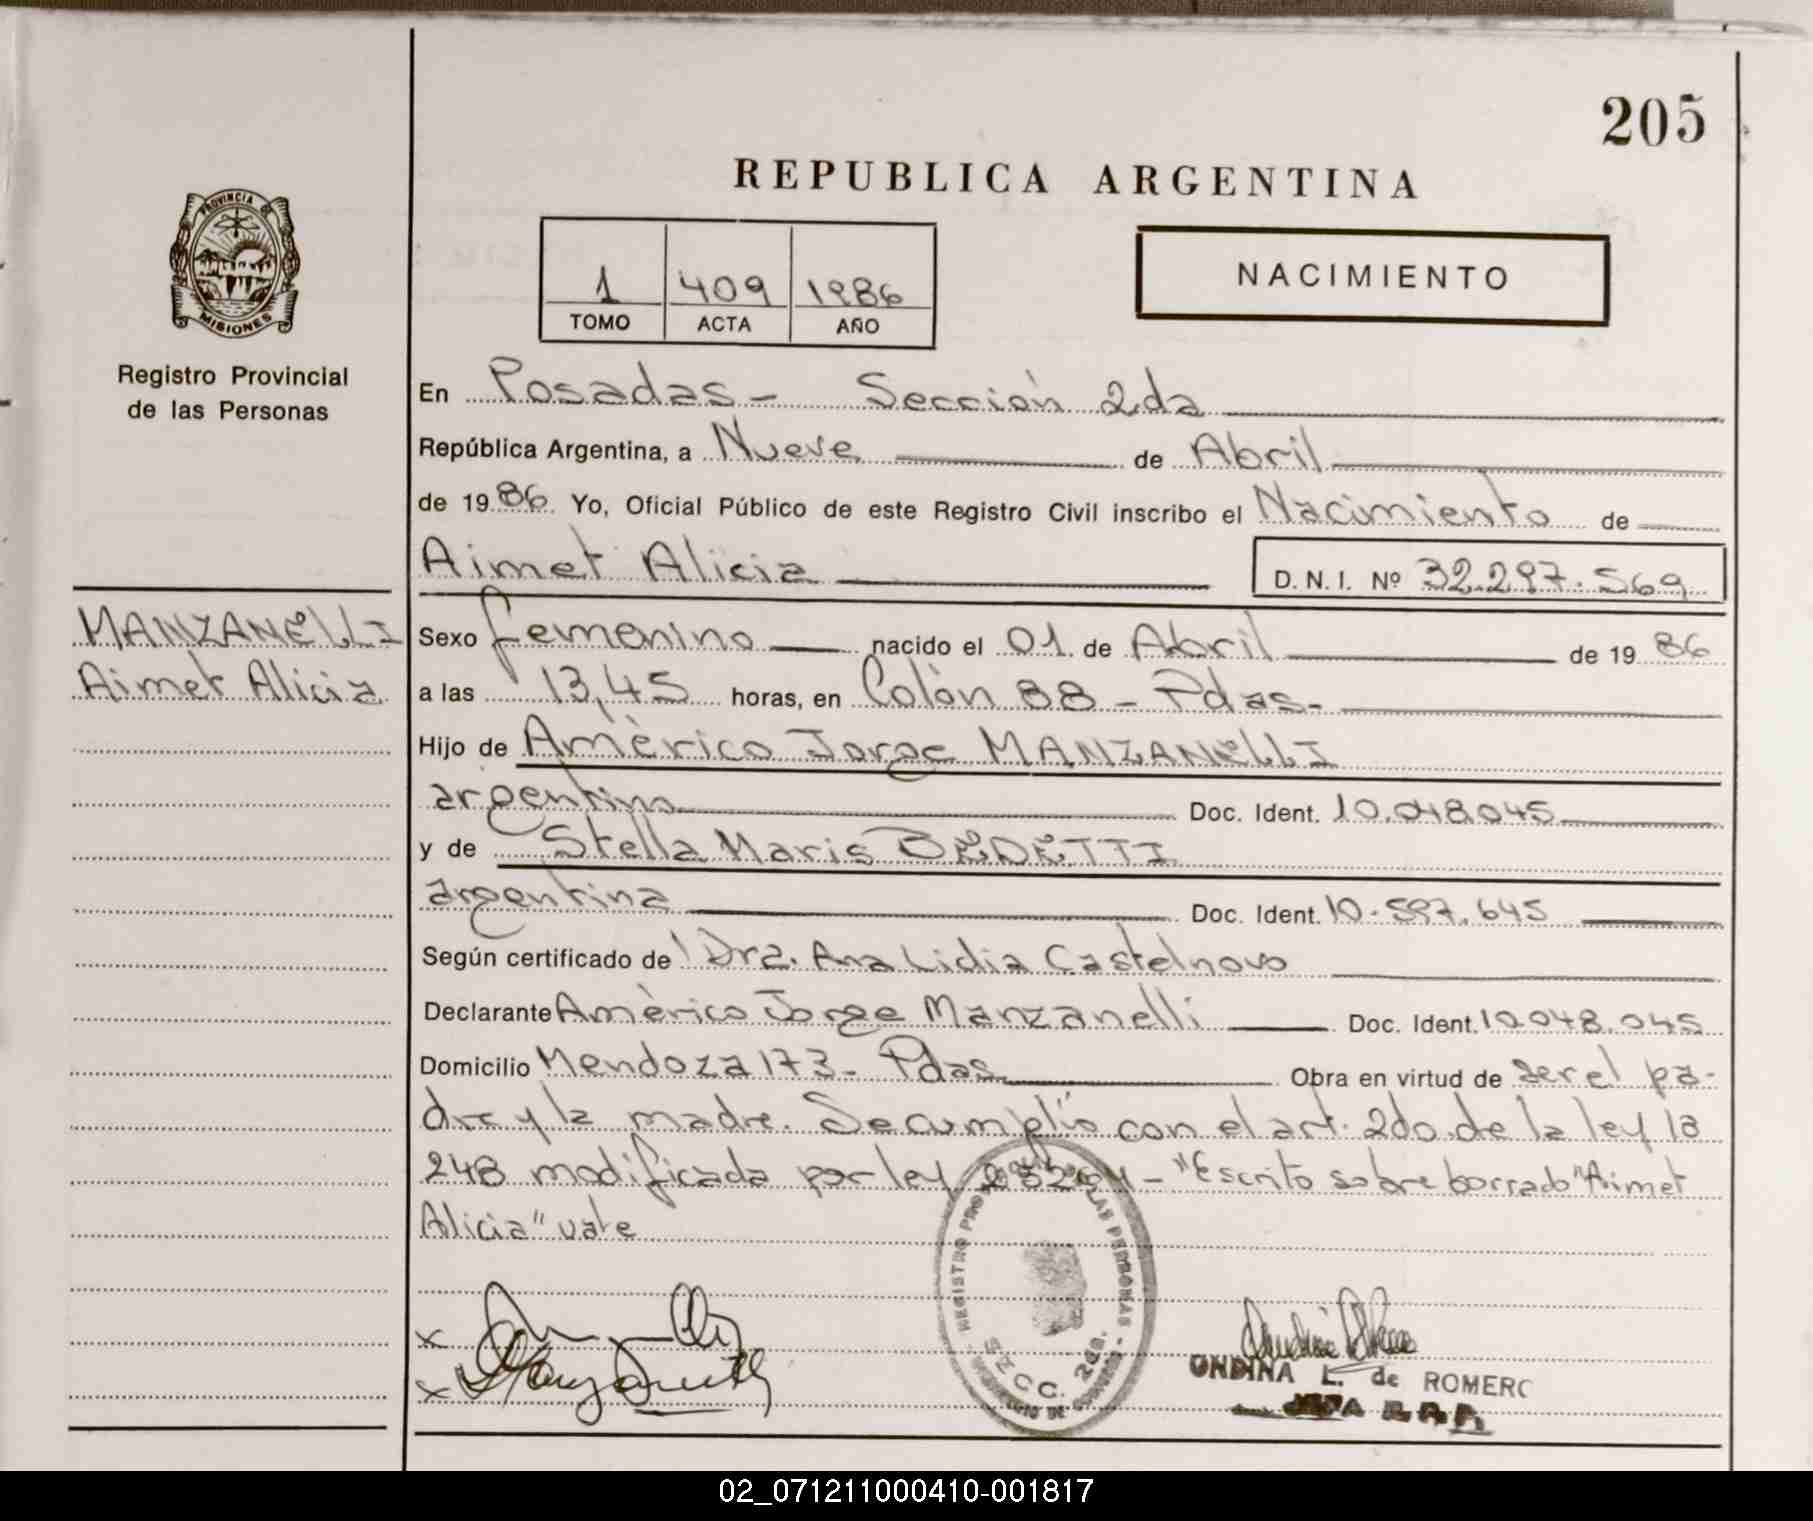 205
REPUBLICA ARGENTINA
PROVINCIA DE
MISIONES
Registro Provincial
de las Personas
1 409 1986
TOMO ACTA AÑO
NACIMIENTO
En Posadas - Sección 2da
República Argentina, a Nueve de Abril
de 1986 Yo, Oficial Público de este Registro Civil inscribo el Nacimiento de
Aimet Alicia D.N.I. Nº 32.297.569
MANZANELLI
Aimet Alicia
Sexo femenino nacido el 01 de Abril de 1986
a las 13,45 horas, en Colòn 88 - Pdas-
Hijo de Amèrico Jorge MANZANELLI
argentino Doc. Ident. 10.048.045
y de Stella Maris BEDETTI
argentina Doc. Ident. 10.597.645
Según certificado de Dra. Ana Lidia Castelnovo
Declarante Amèrico Jorge Manzanelli Doc. Ident. 10.048.045
Domicilio Mendoza 173- Pdas Obra en virtud de ser el pa-
dre y la madre. Se cumplio con el art. 2do. de la ley 18
248 modificada por ley - "Escrito sobre borrado" Aimet
Alicia" vale
REGISTRO LAS PERSONAS
SECC. 2da.
ONDINA L. de ROMERO
JEFA R.P.P.
02_071211000410-001817